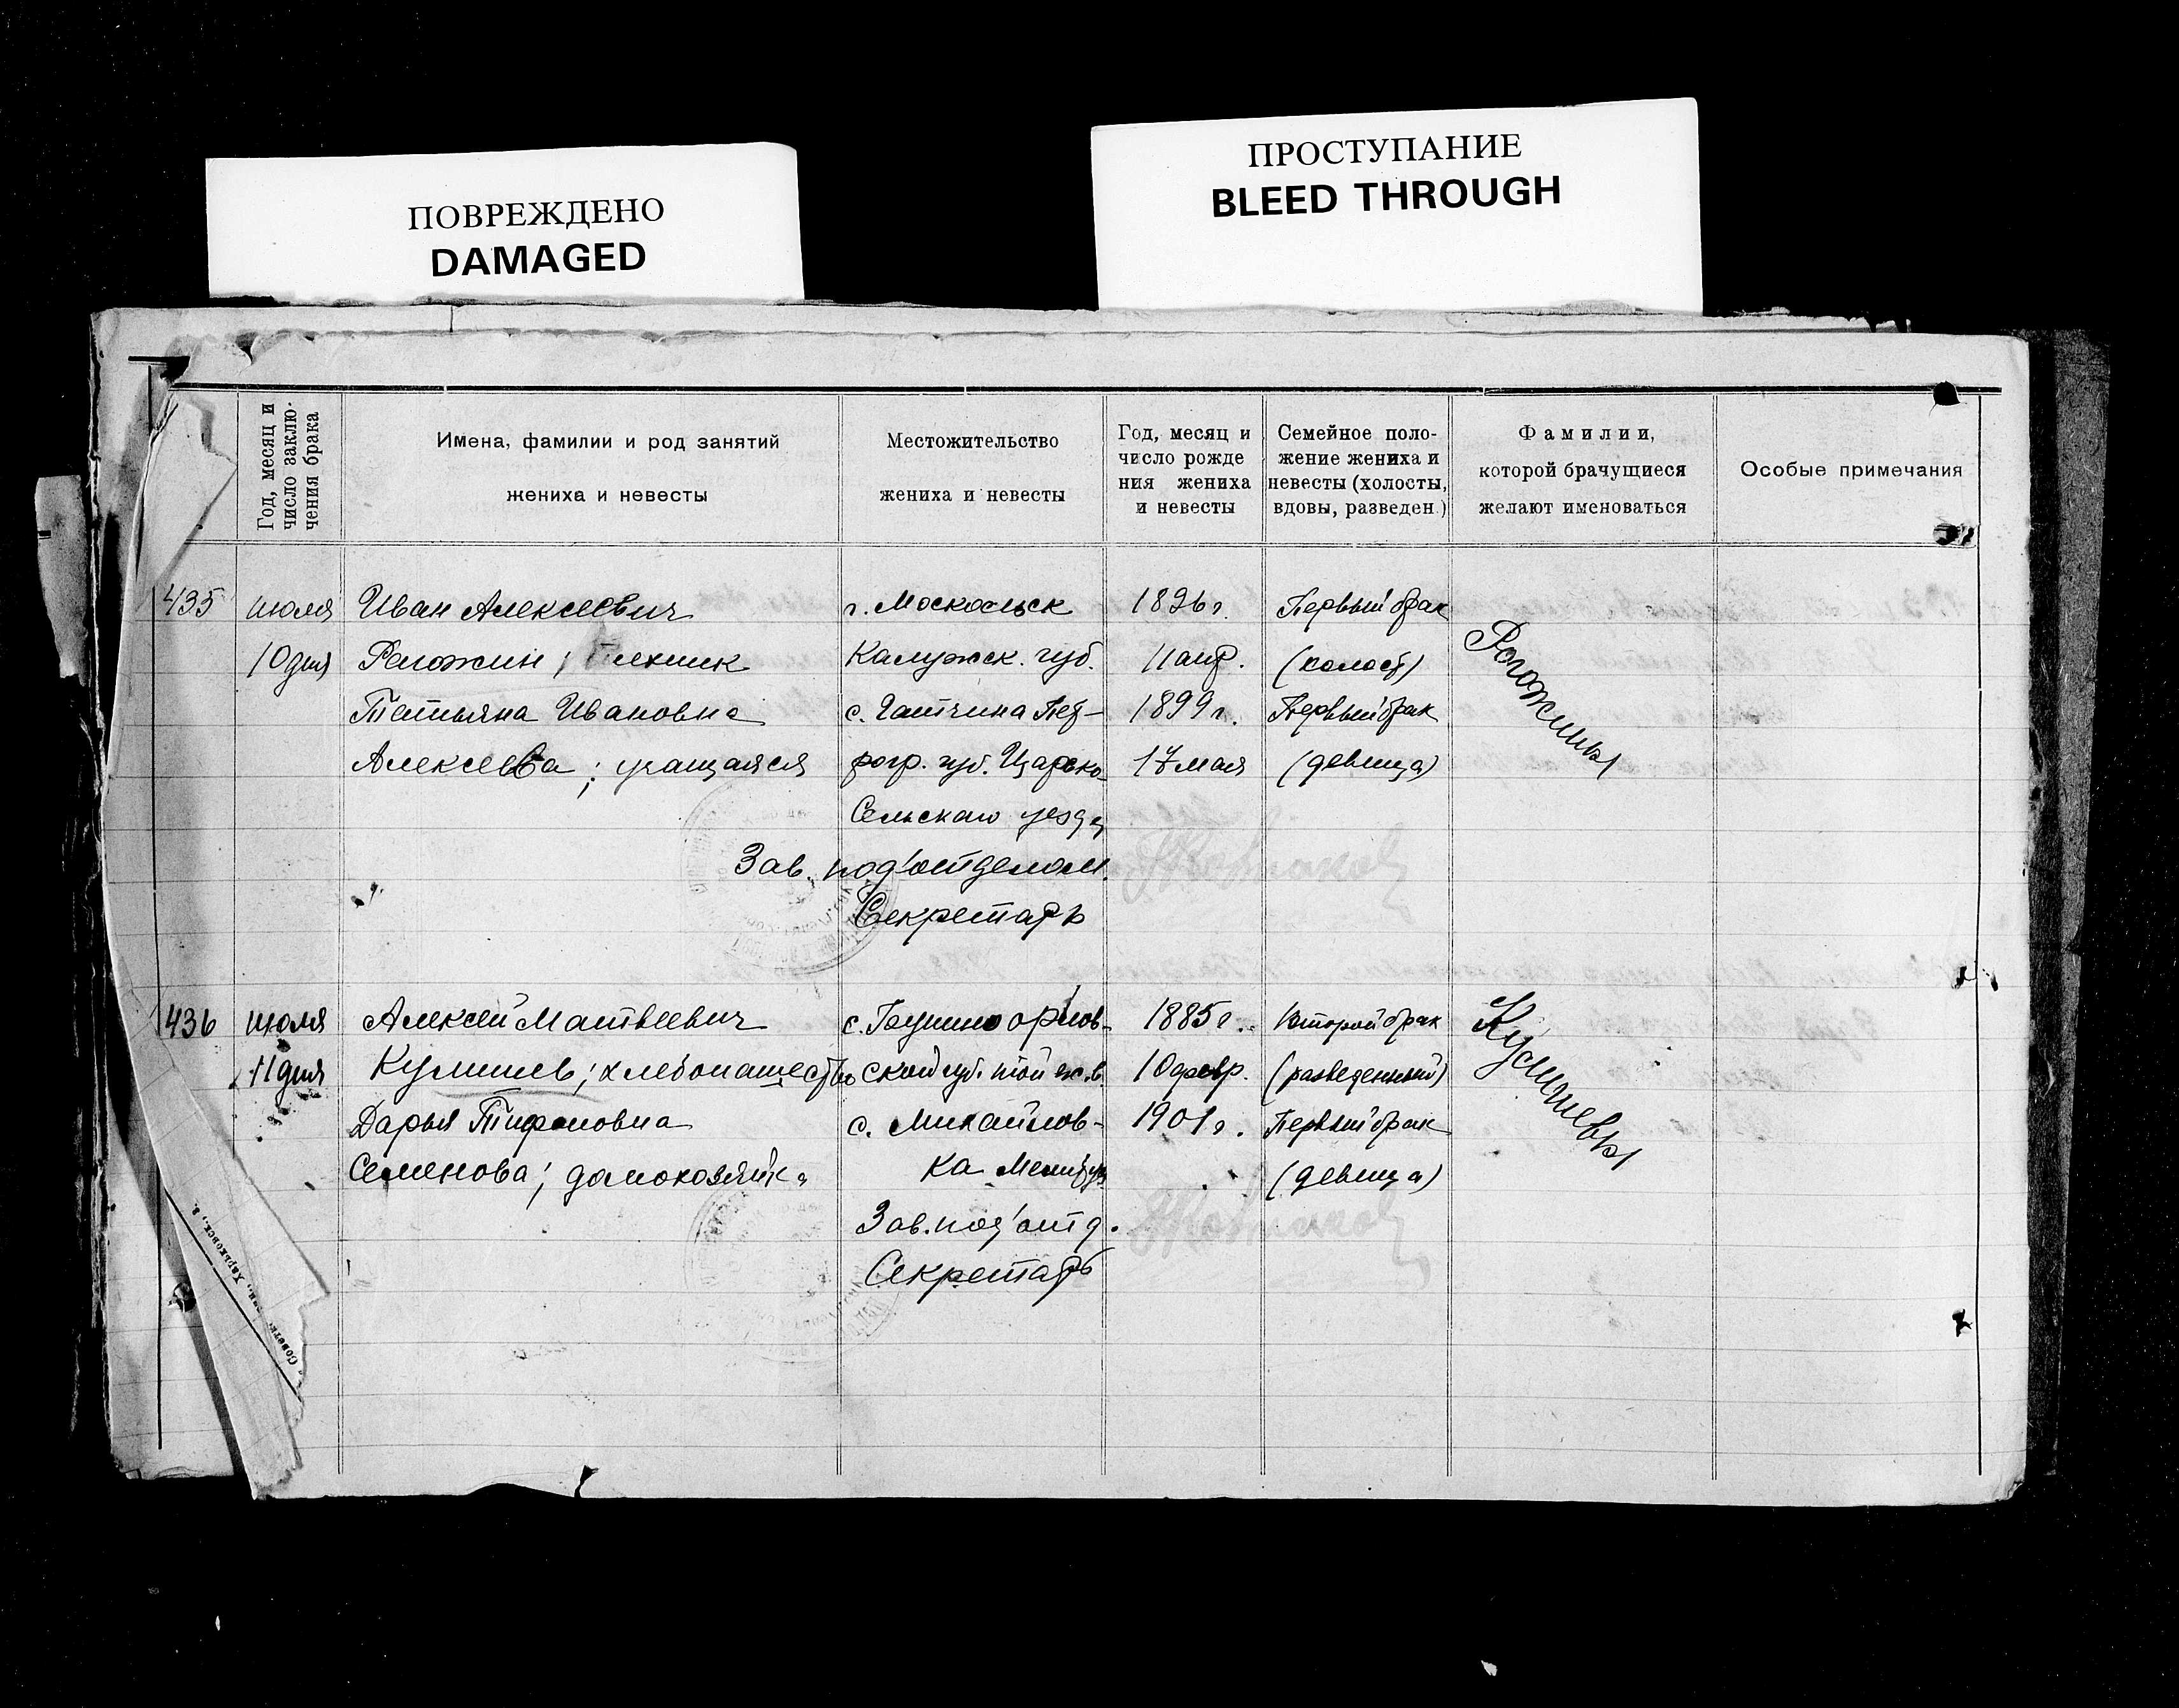 ПОВРЕЖДЕНО
DAMAGED
ПРОСТУПАНИЕ
BLEED THROUGH
Год, месяц и
число заклю-
чения брака
Имена, фамилии и род занятий
жениха и невесты
Местожительство
жениха и невесты
Год, месяц и
число рожде
ния жениха
и невесты
Семейное поло-
жение жениха и
невесты (холосты,
вдовы, разведен.)
Фамилии,
которой брачущиеся
желают именоваться
Особые примечания
435 июля Иван Алексеевич г. 1896 г. Первый брак
10 дня Рогожин; техник Калужск. губ. 11 апр. (холост) Рогожины
Татьяна Ивановна с. Гатчина Пет- 1899 г. Первый брак
Алексеева; учащаяся рогр. губ. Царско- 17 мая (девица)
Сельскаго уезда
Зав. под'отделом.
Секретарь
436 июля Алексей Матвеевич с. орлов- 1885 г. Второй брак
11 дня хлебопашество ской губ. 10 февр. (разведенный)
Дарья с. Михайлов- 1901 г. Первый брак
Семенова; домохозяйка ка (девица)
Зав. под'отд.
Секретарь